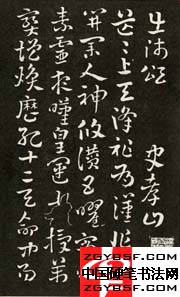 出師頌 史孝山
茫茫上天降祚為漢作基
開業人神攸讚五曜霄映
素靈夜歎皇運來授萬
寶增煥歷紀十二天命中易
中国硬笔书法网